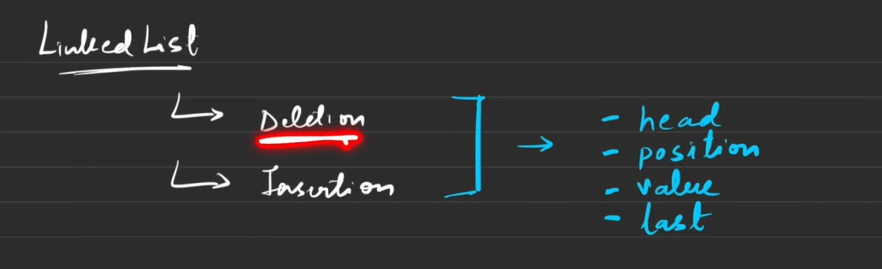 Linked List
↳ Deletion
↳ Insertion
→
- head
- position
- value
- last